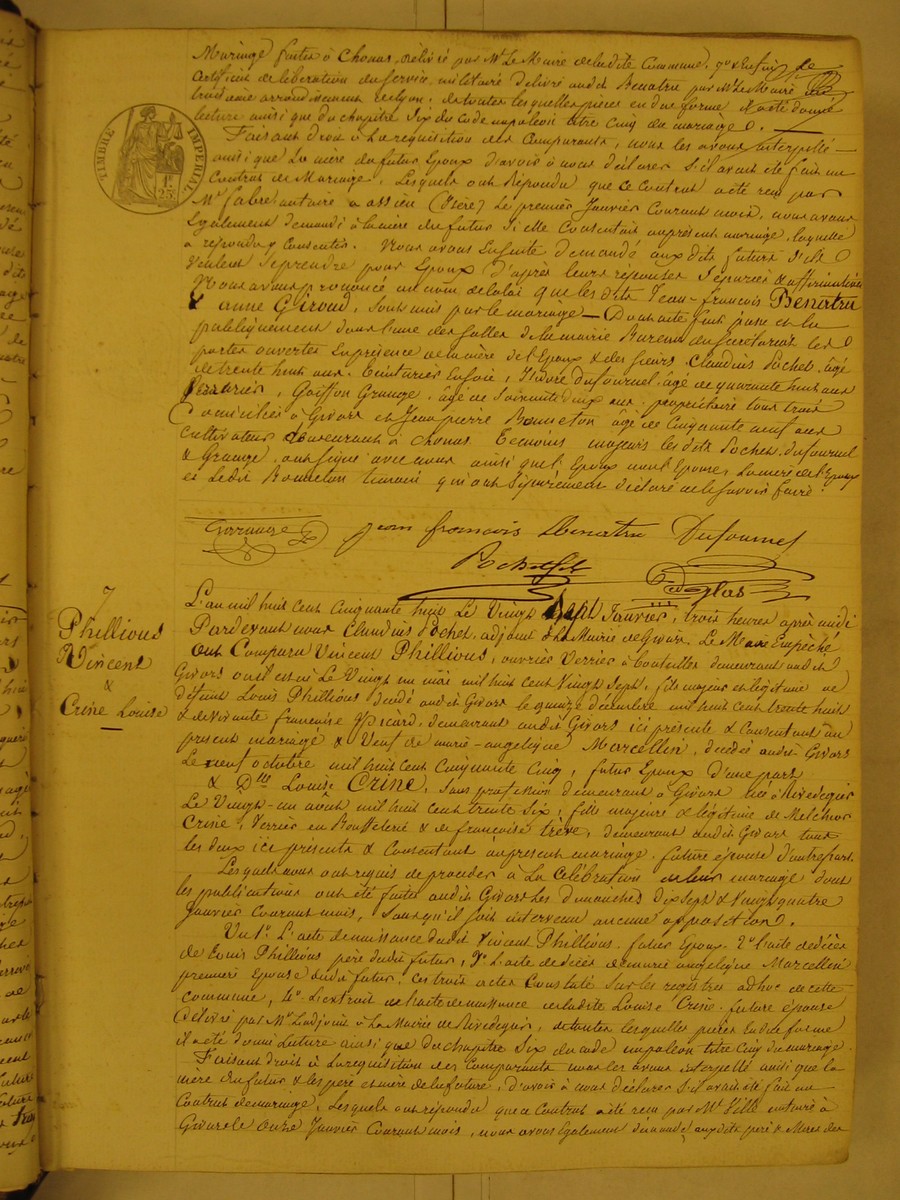 Mariage faites à Chonas, délivré par Mr Le Maire de ladite Commune, 9° Enfin le
Certificat de libération du service militaire délivré audit Benatru par Mr le Maire du
troisième arrondissement de Lyon, de toutes lesquelles pièces en due forme il a été donné
lecture ainsi que du chapitre Six du Code napoléon titre Cinq du mariage.
TIMBRE IMPERIAL
1f 25c
Faisant droit à la requisition des Comparants, nous les avons interpellé
ainsi que la mère du futur Epoux d'avoir à nous déclarer s'il avait été fait un
Contrat de Mariage, Lesquels ont Répondu que ce Contrat a été reçu par
Mr Fabre notaire à assieu (Isère) Le premier Janvier Courant mois, nous avons
Egalement demandé à la mère du futur si elle Consentait au présent mariage, laquelle
a répondu y Consentir. Nous avons Ensuite demandé aux dits futurs s'ils
veulent se prendre pour Epoux d'après leurs réponses séparées & affirmatives
Nous avons prononcé au nom de la loi que les dits Jean-françois Benatru
& anne Giroud, sont unis par le mariage - Dont acte fait passé et lu
publiquement dans l'une des salles de la mairie Bureau du secrétariat les
portes ouvertes En présence de la mère de l'Epoux & des sieurs Claudius Pochet, âgé
de trente huit ans, teinturier En soie, Dufournel âgé de quarante huit ans
Goiffon Grange, âgé de Soixante deux ans propriétaire tous trois
Domiciliés à Givors et Jean pierre Bonneton âgé de Cinquante neuf ans
Cultivateur demeurant à Chonas Témoins majeurs les dits Pochet, Dufournel
& Grange ont signé avec nous ainsi que l'Epoux non l'Epouse, la mère de l'Epoux
et ledit Bonneton témoin qui ont séparément déclaré ne le savoir faire.
jean francois Benatru Dufournel
Pochet
7
Phillious
Vincent
&
Crine Louise
L'an mil huit Cent Cinquante huit Le Vingt Sept Janvier, trois heures après midi
Pardevant nous Claudius Pochet, adjoint à la Mairie de Givors. Le Maire Empêché
Ont Comparu Vincent Phillious, ouvrier Verrier à bouteilles demeurant audit
Givors où il est né Le Vingt un mai mil huit Cent Vingt Sept, fils majeur et légitime de
défunt Louis Phillious décédé audit Givors le quinze décembre mil huit Cent trente huit
& de vivante françoise Picard, demeurant audit Givors ici présente & Consentant au
present mariage & Veuf de marie-angelique Marcellin, décédée audit Givors
Le neuf octobre mil huit Cent Cinquante Cinq, futur Epoux d'une part
& Dlle Louise Crine, sans profession demeurant à Givors née à Rivedegier
Le Vingt-un avril mil huit Cent trente Six, fille majeure & légitime de Melchior
Crine, Verrier en & de françoise trève, demeurant audit Givors tous
les deux ici présents & Consentant au présent mariage. future épouse d'autre part
Lesquels nous ont requis de procéder à La Célébration de leur mariage dont
les publications ont été faites audit Givors Les dimanches dix Sept & Vingt quatre
Janvier Courant mois, sans qu'il soit intervenu aucune opposition.
Vu 1° L'acte de naissance dudit Vincent Phillious. futur Epoux. 2° l'acte de décès
de Louis Phillious père dudit futur, 3° L'acte de décès de marie angelique Marcellin
première Epouse dudit futur. Ces trois actes Constatés sur les registres adhoc de cette
commune, 4° L'extrait de l'acte de naissance de ladite Louise Crine. future épouse
délivré par Mr L'adjoint à la Mairie de Rivedegier, de toutes lesquelles pièces En due forme
il a été donné lecture ainsi que du chapitre Six du code napoléon titre Cinq du mariage.
Faisant droit à la requisition des Comparants nous les avons interpellé ainsi que la
mère du futur & les père et mère de la future, d'avoir à nous déclarer s'il avait été fait un
Contrat de mariage, Lesquels ont répondu que ce Contrat a été reçu par Mr Ville notaire à
Givors le Onze Janvier Courant mois, nous avons Egalement demandé aux dits père & Mère des